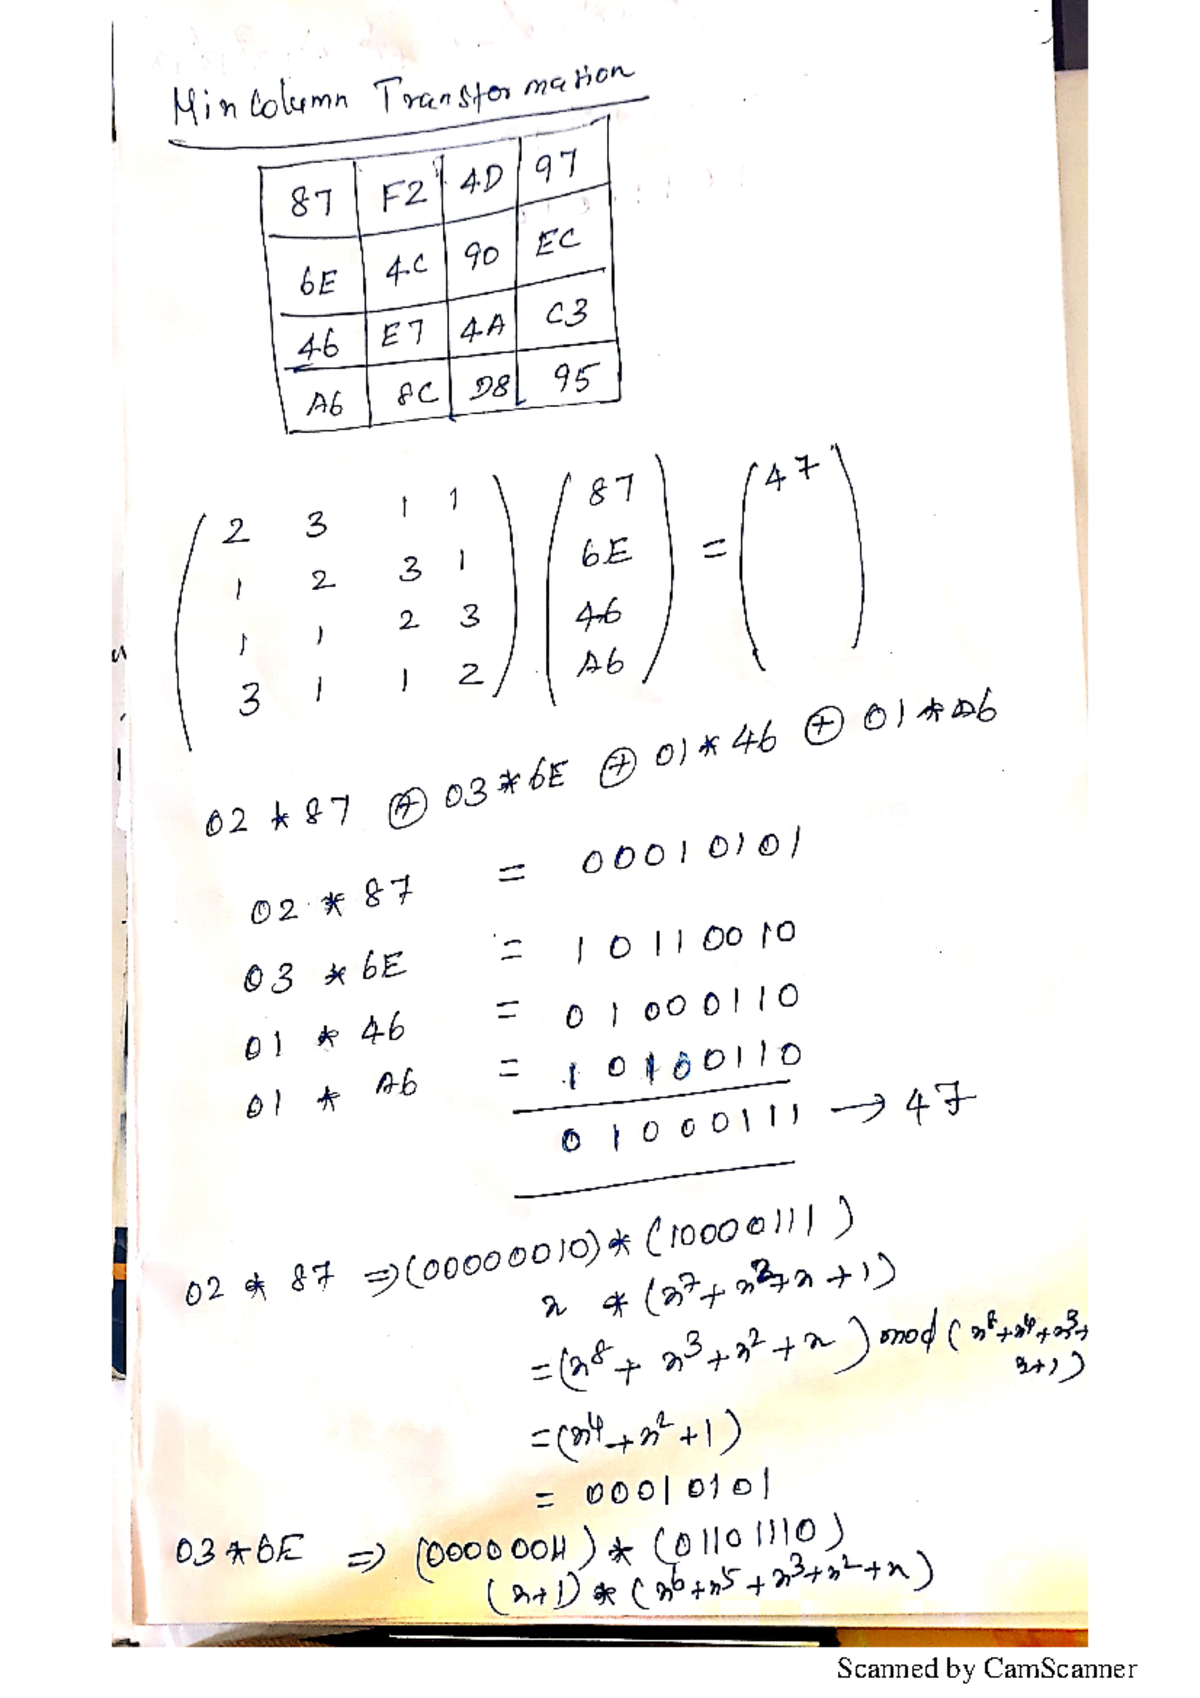 Mix Column Transformation
87 F2 4D 97
6E 4C 90 EC
46 E7 4A C3
A6 8C D8 95
2 3 1 1 87 47
1 2 3 1 6E =
1 1 2 3 46
3 1 1 2 A6
02 * 87 ⊕ 03 * 6E ⊕ 01 * 46 ⊕ 01 * A6
02 * 87 = 00010101
03 * 6E = 10110010
01 * 46 = 01000110
01 * A6 = 10100110
01000111 → 47
02 * 87 ⇒ (00000010) * (10000111)
x * (x⁷ + x² + x + 1)
= (x⁸ + x³ + x² + x) mod (x⁸ + x⁴ + x³ +
x + 1)
= (x⁴ + x² + 1)
= 00010101
03 * 6E ⇒ (00000011) * (01101110)
(x + 1) * (x⁶ + x⁵ + x³ + x² + x)
Scanned by CamScanner